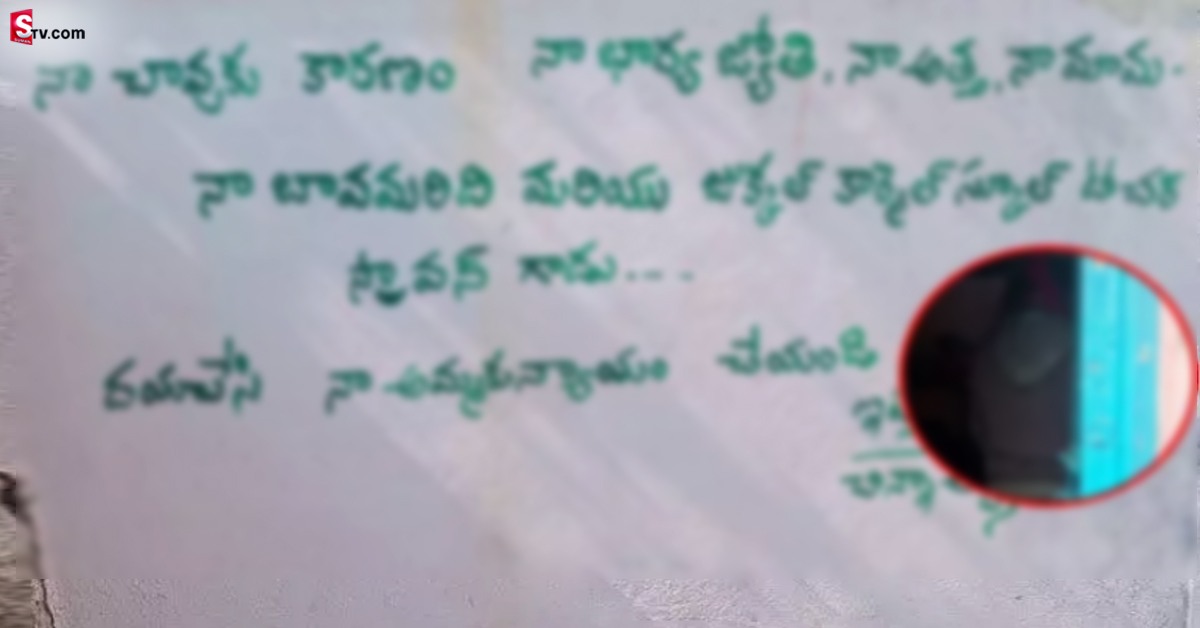 STV.com
నా చావుకు కారణం నా భార్య జ్యోతి, నా అత్త, నా మామ.
నా బావమరిది మరియు జుక్కల్ కార్మెల్ స్కూల్ టీచర్
స్రావన్ గాడు....
దయచేసి నా అమ్మకు న్యాయం చేయండి